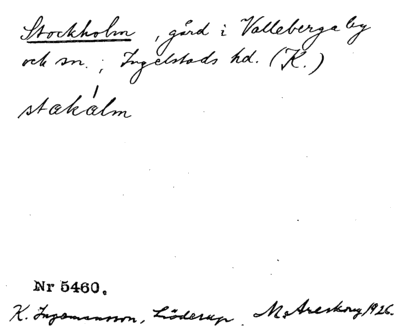 Stockholm, gård i Valleberga by
och sn.; Ingelstads hd. (K.)
stakálm
Nr 5460.
K. Ingemansson, Löderup M. Areskoug 1926.